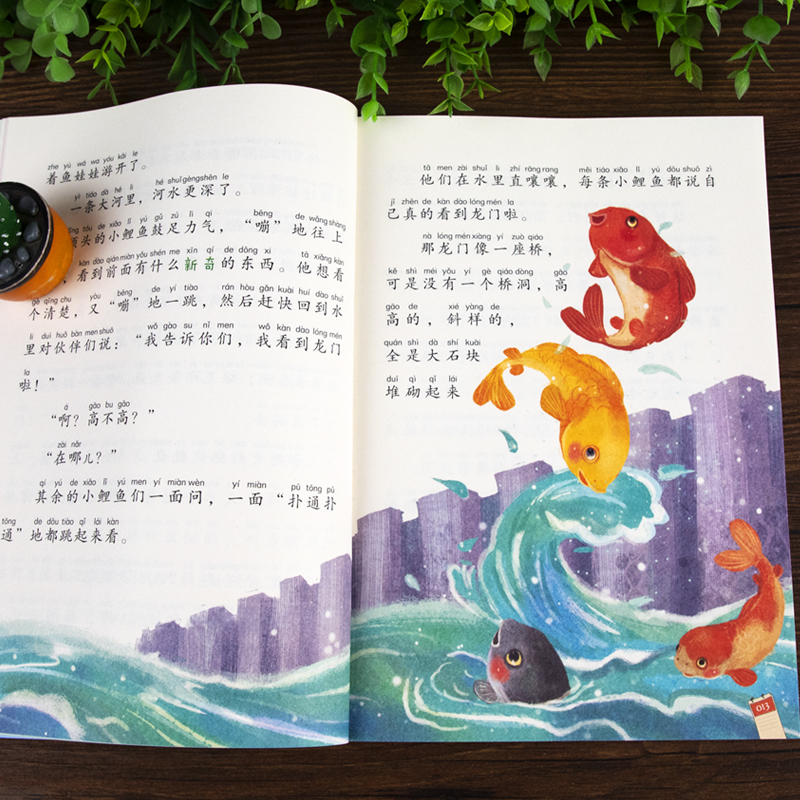 zhe yú wá wa yóu kāi le
着鱼娃娃游开了。
yì tiáo dà hé lǐ hé shuǐ gèng shēn le
一条大河里，河水更深了。
tóu de xiǎo lǐ yú gǔ zú lì qì bēng de wǎng shàng
头的小鲤鱼鼓足力气，“嘣”地往上
kàn dào qián miàn yǒu shén me xīn qí de dōng xi tā xiǎng kàn
，看到前面有什么新奇的东西。他想看
gè qīng chu yòu bēng de yí tiào rán hòu gǎn kuài huí dào shuǐ
个清楚，又“嘣”地一跳，然后赶快回到水
lǐ duì huǒ bàn men shuō wǒ gào su nǐ men wǒ kàn dào lóng mén
里对伙伴们说：“我告诉你们，我看到龙门
la
啦！”
á gāo bu gāo
“啊？高不高？”
zài nǎr
“在哪儿？”
qí yú de xiǎo lǐ yú men yí miàn wèn yí miàn pū tōng pū
其余的小鲤鱼们一面问，一面“扑通扑
tōng de dōu tiào qǐ lái kàn
通”地都跳起来看。
tā men zài shuǐ lǐ zhí rāng rang měi tiáo xiǎo lǐ yú dōu shuō zì
他们在水里直嚷嚷，每条小鲤鱼都说自
jǐ zhēn de kàn dào lóng mén la
己真的看到龙门啦。
nà lóng mén xiàng yí zuò qiáo
那龙门像一座桥，
kě shì méi yǒu yí gè qiáo dòng gāo
可是没有一个桥洞，高
gāo de xié yàng de
高的，斜样的，
quán shì dà shí kuài
全是大石块
duī qì qǐ lái
堆砌起来
013